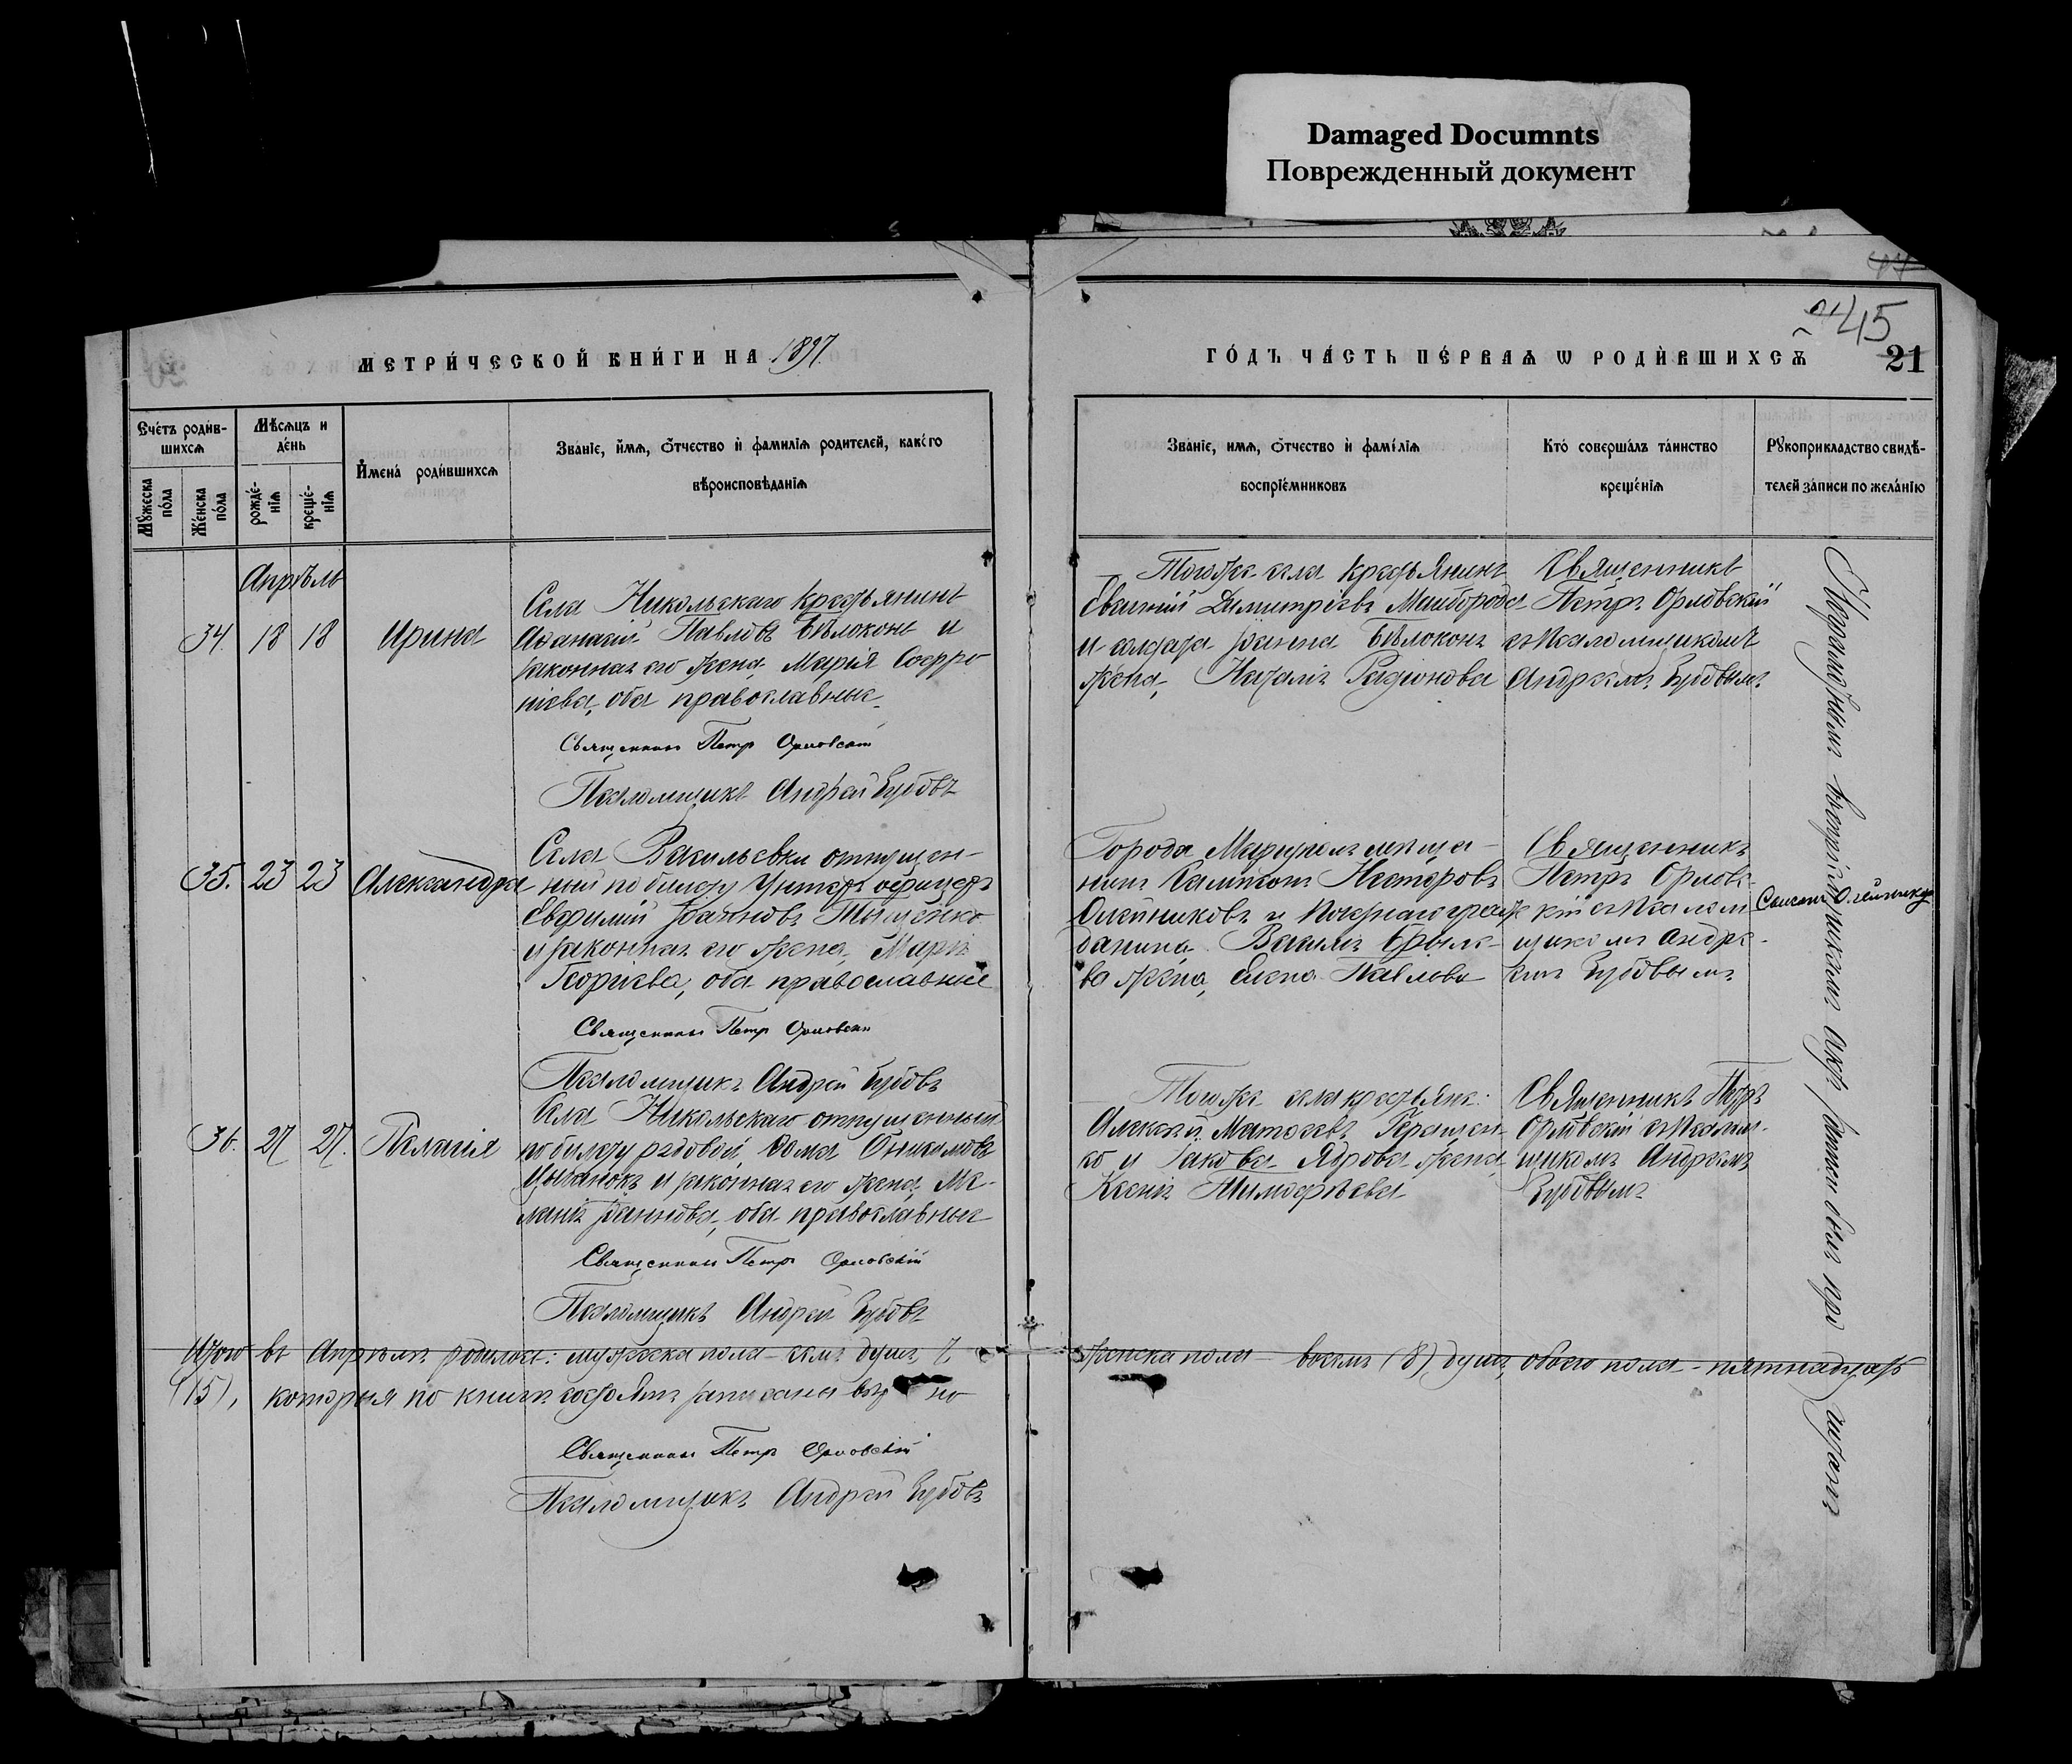 Damaged Documnts
Поврежденный документ
45
21
МЕТРИ́ЧЕСКОЙ КНИ́ГИ НА 1897
ГО́ДЪ ЧА́СТЬ ПЕ́РВАѦ Ѡ РОДИ́ВШИХСѦ
Счётъ роди́в-
шихсѧ
Мꙋжеска
по́ла
Же́нска
по́ла
Мѣ́сѧцъ и
де́нь
рожде́-
нїѧ
креще́-
нїѧ
Имена́ роди́вшихсѧ
Зва́нїе, и́мѧ, ѻ́тчество и̑ фамилїѧ родителей, какѓ́о
вѣроисповѣданїѧ
Зва́нїе, имѧ, ѻ́тчество и̑ фамі́лїѧ
воспрїе́мниковъ
Кто́ соверша́лъ та́инство
креще́нїѧ
Рꙋкоприкладство свидѣ-
телей за́писи по жела́нїю
Апрѣль
34. 18 18 Ирина
Села Никольскаго крестьянинъ
Аѳанасій Павловъ Бѣлоконь и
законная его жена, Марія Софро
ніева, оба православные.
Священникъ Петръ Орловскій
Псаломщикъ Андрей Зубовъ
Тогоже села крестьянинъ
Евгеній Димитріевъ Майборода
и солдата Бѣлоконъ
жена, Наталія Родіонова
Священникъ
Петръ Орловскій
съ псаломщикомъ
Андреемъ Зубовымъ
35. 23 23 Александра
Села Васильевки отпущен-
ный по билету унтеръ офицеръ
Евфимій Іоанновъ Тищенко
и законная его жена, Марія
Георгіева, оба православные
Священникъ Петръ Орловскій
Псаломщикъ Андрей Зубовъ
Города Маріуполя мѣща-
нинъ Нестеровъ
Олейниковъ и почетнаго граж
данина Василія
ва жена, Елена Павлова
Священникъ
Петръ Орловс-
кій съ псалом
щикомъ Андре-
емъ Зубовымъ
36. 27 27. Пелагія
Села Никольскаго отпущенный
по билету рядовой Ѳома
Цыганокъ и законная его жена, Ме-
ланія Іоаннова, оба православные
Священникъ Петръ Орловскій
Псаломщикъ Андрей Зубовъ
Тогоже села крестьяне:
Алексей Матѳеевъ Геращен-
ко и Іакова Ядрова жена
Ксенія Тимоѳеева
Священникъ Петръ
Орловскій съ псалом-
щикомъ Андреемъ
Зубовымъ
Итого въ Апрѣлѣ родилось: мужеска пола - семь душъ, 7, женска пола - восемь (8), душъ, обоего пола - пятнадцать
(15), которыя по книгѣ записаны вѣрно
Священникъ Петръ Орловскій
Псаломщикъ Андрей Зубовъ